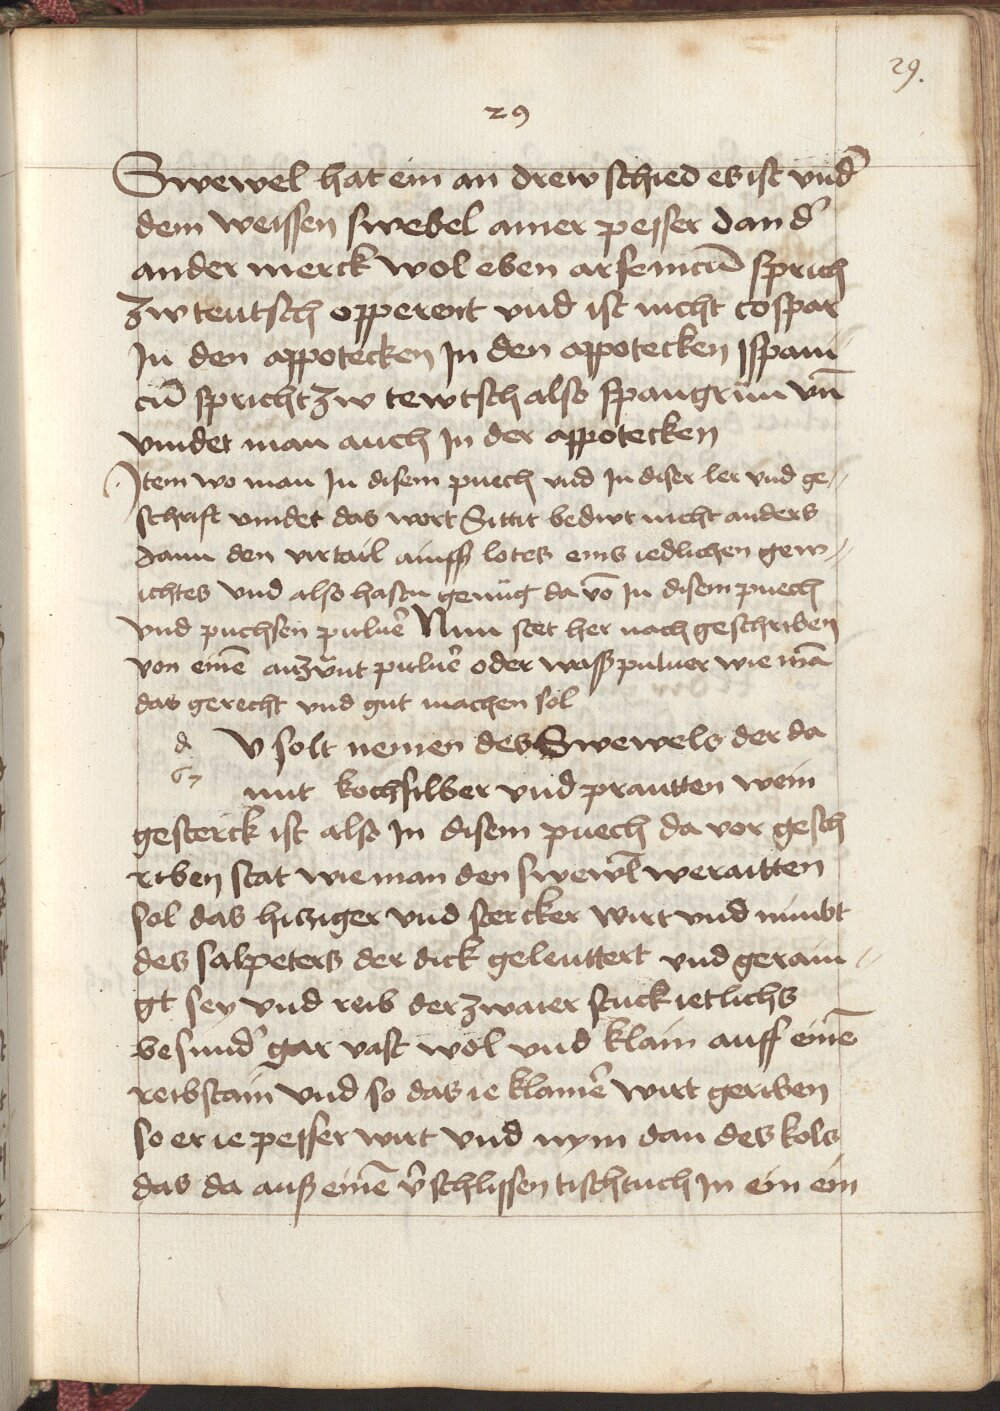 29.
29
Swewel hat ein an drew schied es ist vnd̕
dem weissen swebel ainer pesser dan d̕
ander merck wol eben arsenicū sprich
zw teutsch opperent vnd ist nicht cospar
In den appotecken In den appotecken Ispani
cū spricht zw tewtsch also spangrün vn̄
vindet man auch In der appotecken
Item wo man In disem puech vnd In diser ler vnd ge⸗
schrift vindet das wort Sittit bediut nicht anders
dann den virtail ainß lotes eins iedlichen gew⸗
ichtes vnd also hastu genüg da vō In disem puech
vnd puchsen puluer̄ Nun stet her nach geschriben
von einē anzünt puluer̄ oder waß puluer wie mā
das gerecht vnd gut machen sol
d
67
V solt nemen des Swewels der da
mit kochsilber vnd prantten wein
gesterck ist also In disem puech da vor gesch
riben stat wie man den swewl̄ weraitten
sol das hitziger vnd stercker wirt vnd nimbt
des salpeters der dick geleuttert vnd gerain⸗
gt sey vnd reib der zwaier stuck ietlichs
besund̕ gar vast wol vnd klain auff einē
reibstain vnd so das ie klainer̄ wirt geriben
so er ie pesser wirt vnd nym dan des kols
das da auß einē v̄schlissen tischtuch In ein ein